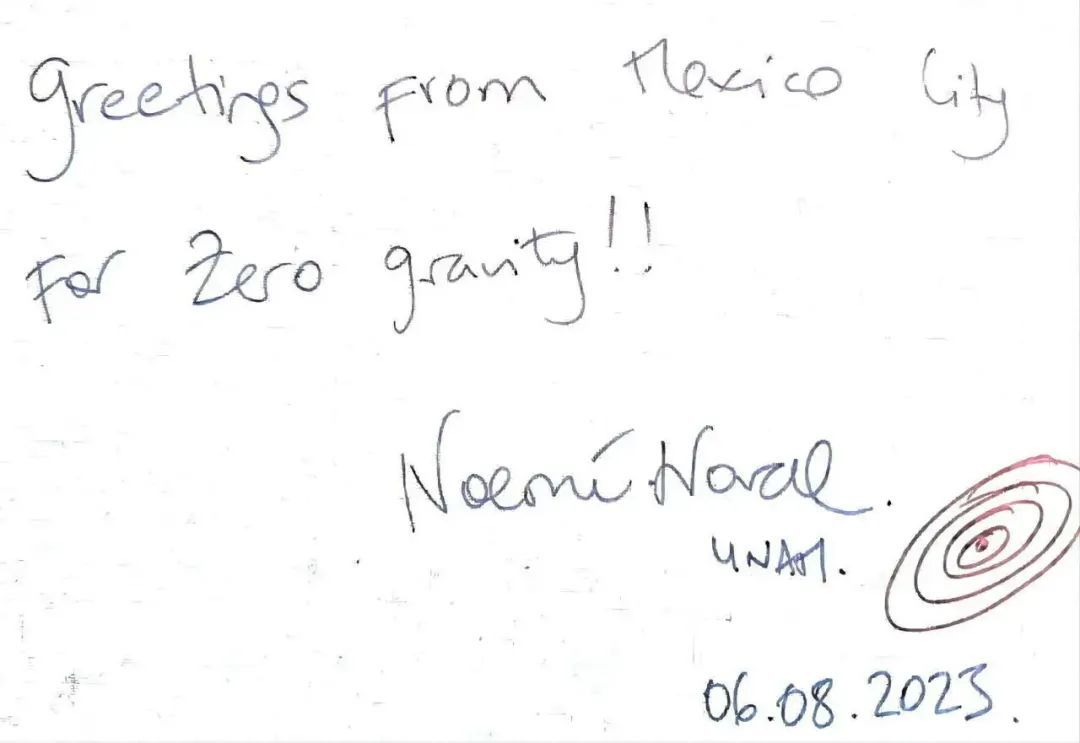 Greetings from Mexico City
For Zero gravity!!
Noemí
UNAM.
06.08.2023.